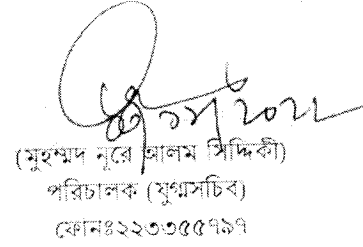 (মুহম্মদ নূরে আলম সিদ্দিকী)
পরিচালক (যুগ্মসচিব)
ফোনঃ২২৩৩৫৫৭৯৭